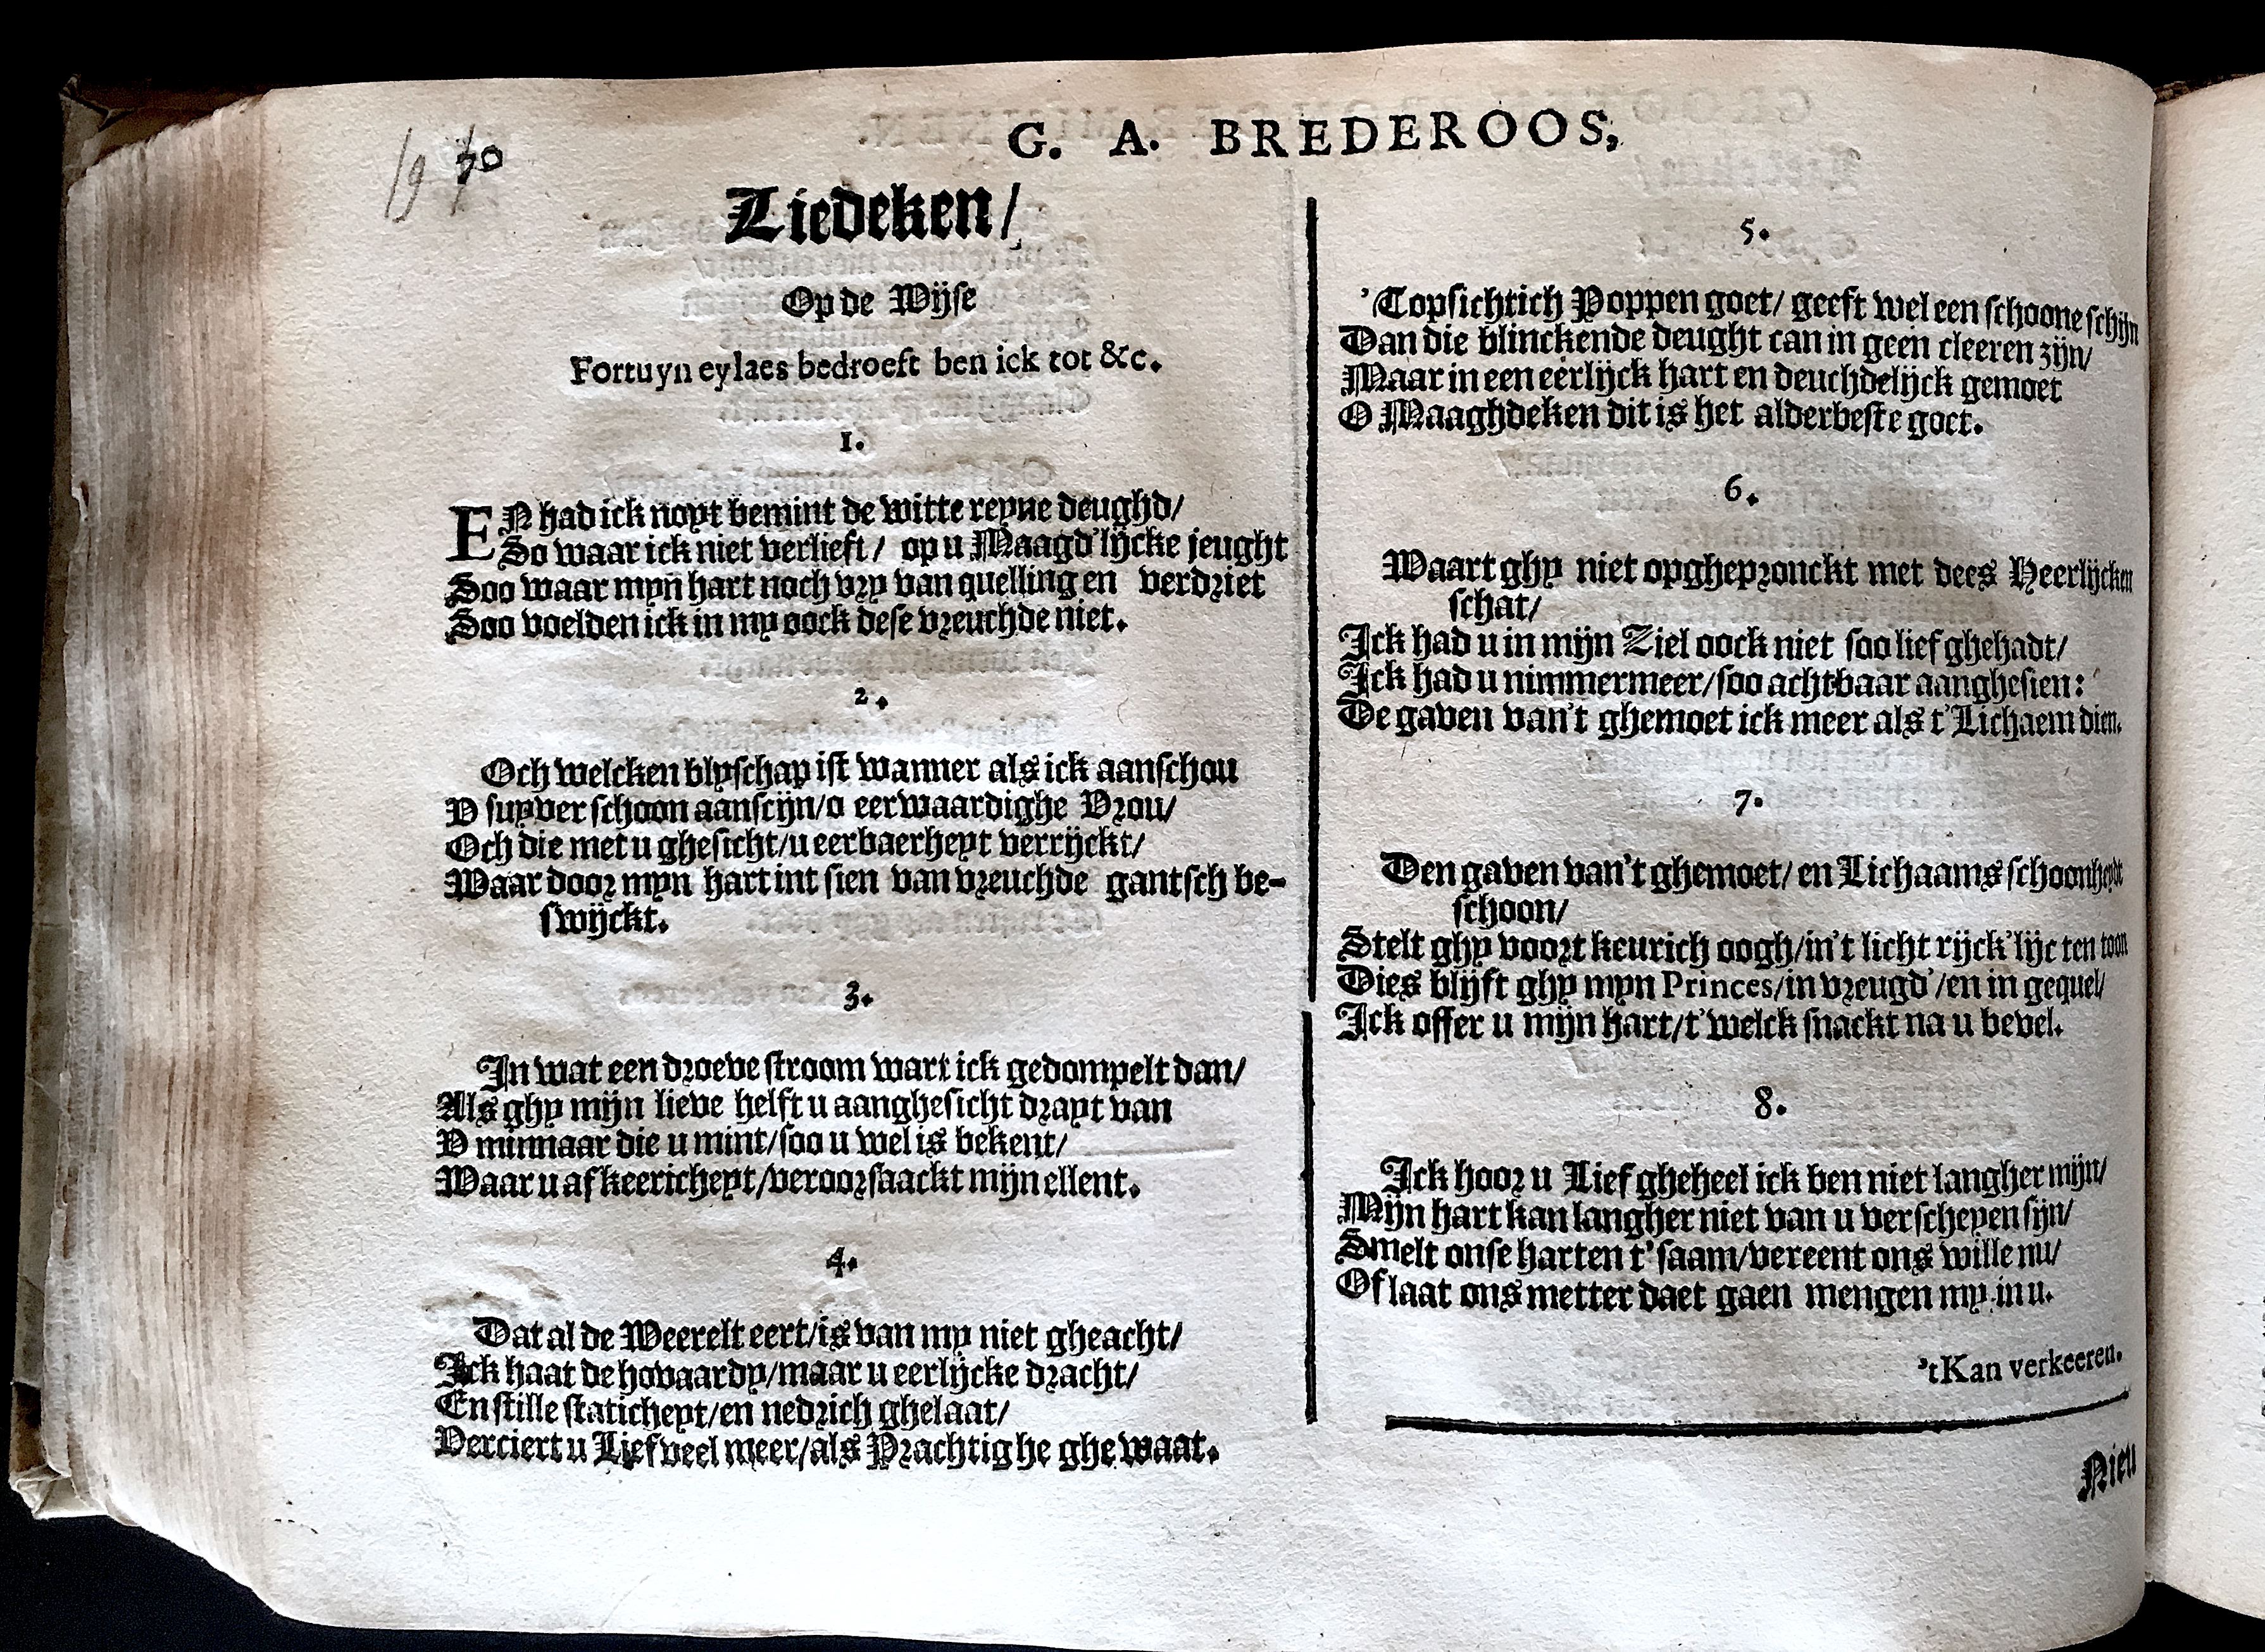 19
70
G. A. BREDEROOS,
Liedeken/
Op de Wijse
Fortuyn eylaes bedroeft ben ick tot &c.
1.
EN had ick noyt bemint de witte reyne deughd/
So waar ick niet verlieft/ op u Maagd'lijcke jeught
Soo waar myn hart noch vry van quelling en verdriet
Soo voelden ick in my oock dese vreuchde niet.
2.
Och welcken blyschap ist wanner als ick aanschou
V suyver schoon aanscijn/o eerwaardighe Vrou/
Och die met u ghesicht/u eerbaerheyt verrijckt/
Maar door myn hart int sien van vreuchde gantsch be-
swijckt.
3.
In wat een droeve stroom wart ick gedompelt dan/
Als ghy mijn lieve helft u aanghesicht drayt van
V minnaar die u mint/soo u wel is bekent/
Maar u afkeericheyt/veroorsaackt mijn ellent.
4.
Dat al de Weerelt eert/is van my niet gheacht/
Ick haat de hovaardy/maar u eerlijcke dracht/
En stille staticheyt/en nedrich ghelaat/
Verciert u Lief veel meer/als Prachtighe ghewaat.
5.
'Topsichtich Poppen goet/ geeft wel een schoone schijn
Dan die blinckende deught can in geen cleeren zijn/
Maar in een eerlijck hart en deuchdelijck gemoet
O Maaghdeken dit is het alderbeste goet.
6.
Waart ghy niet opghepronckt met dees Heerlijcken
schat/
Ick had u in mijn Ziel oock niet soo lief ghehadt/
Ick had u nimmermeer/soo achtbaar aanghesien:
De gaven van't ghemoet ick meer als t'Lichaem dien.
7.
Den gaven van't ghemoet/ en Lichaams schoonheydt
schoon/
Stelt ghy voort keurich oogh/in't licht rijck'lijc ten toon
Dies blijft ghy myn Princes/in vreugd'/en in gequel/
Ick offer u mijn hart/t'welck snackt na u bevel.
8.
Ick hoor u Lief gheheel ick ben niet langher mijn/
Mijn hart kan langher niet van u verscheyen sijn/
Smelt onse harten t'saam/vereent ons wille nu/
Of laat ons metter daet gaen mengen my in u.
'tKan verkeeren.
Nieu